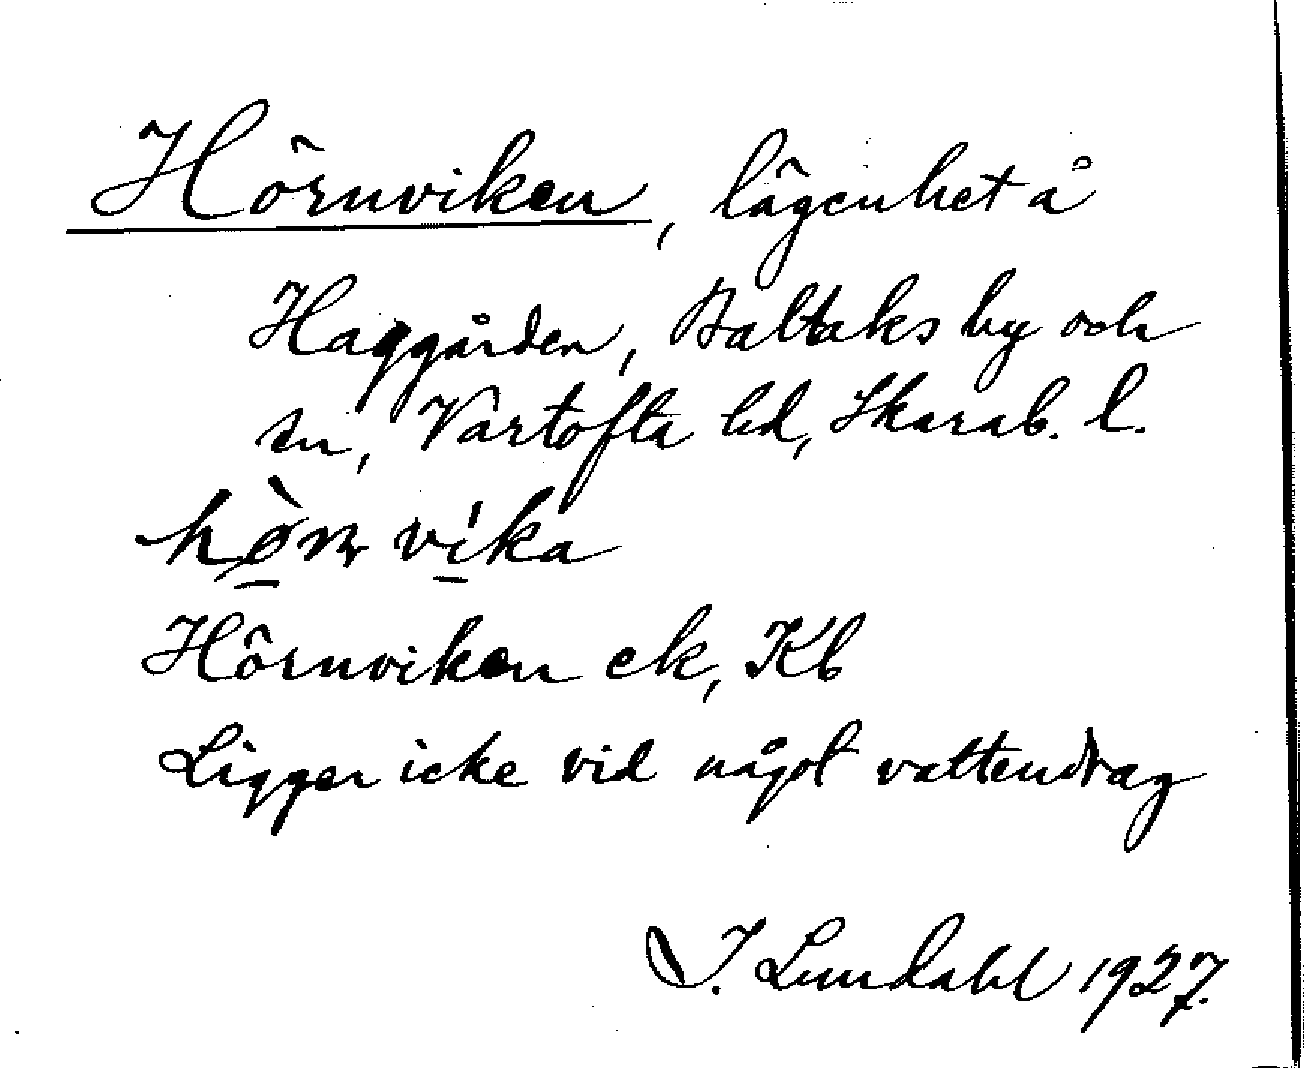 Hörnviken, lägenhet å
Haggården, Baltaks by och
sn, Vartofta hd, Skarab. l.
Hörnviken ek, Kb
Ligger icke vid något vattendrag
I. Lundahl 1927.